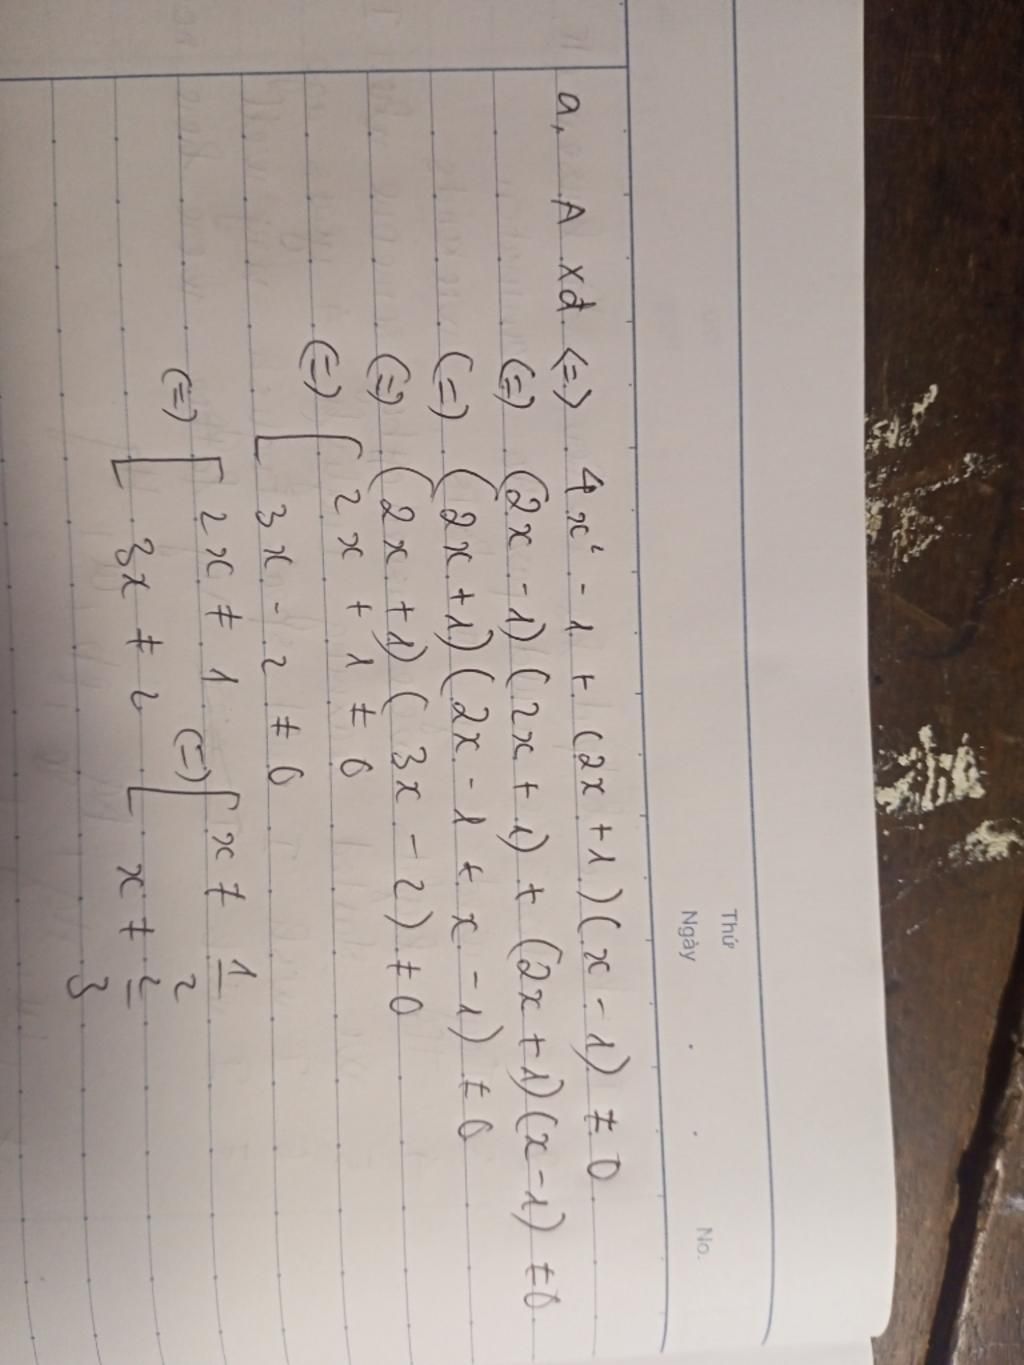 Thứ
Ngày . . No.
a, A xđ (=) 4x² - 1 + (2x + 1)(x - 1) ≠ 0
(=) (2x - 1)(2x + 1) + (2x + 1)(x - 1) ≠ 0
(=) (2x + 1)(2x - 1 + x - 1) ≠ 0
(=) (2x + 1)(3x - 2) ≠ 0
(=) [ 2x + 1 ≠ 0
3x - 2 ≠ 0
(=) [ 2x ≠ 1 (=) [ x ≠ 1/2
3x ≠ 2 x ≠ 2/3